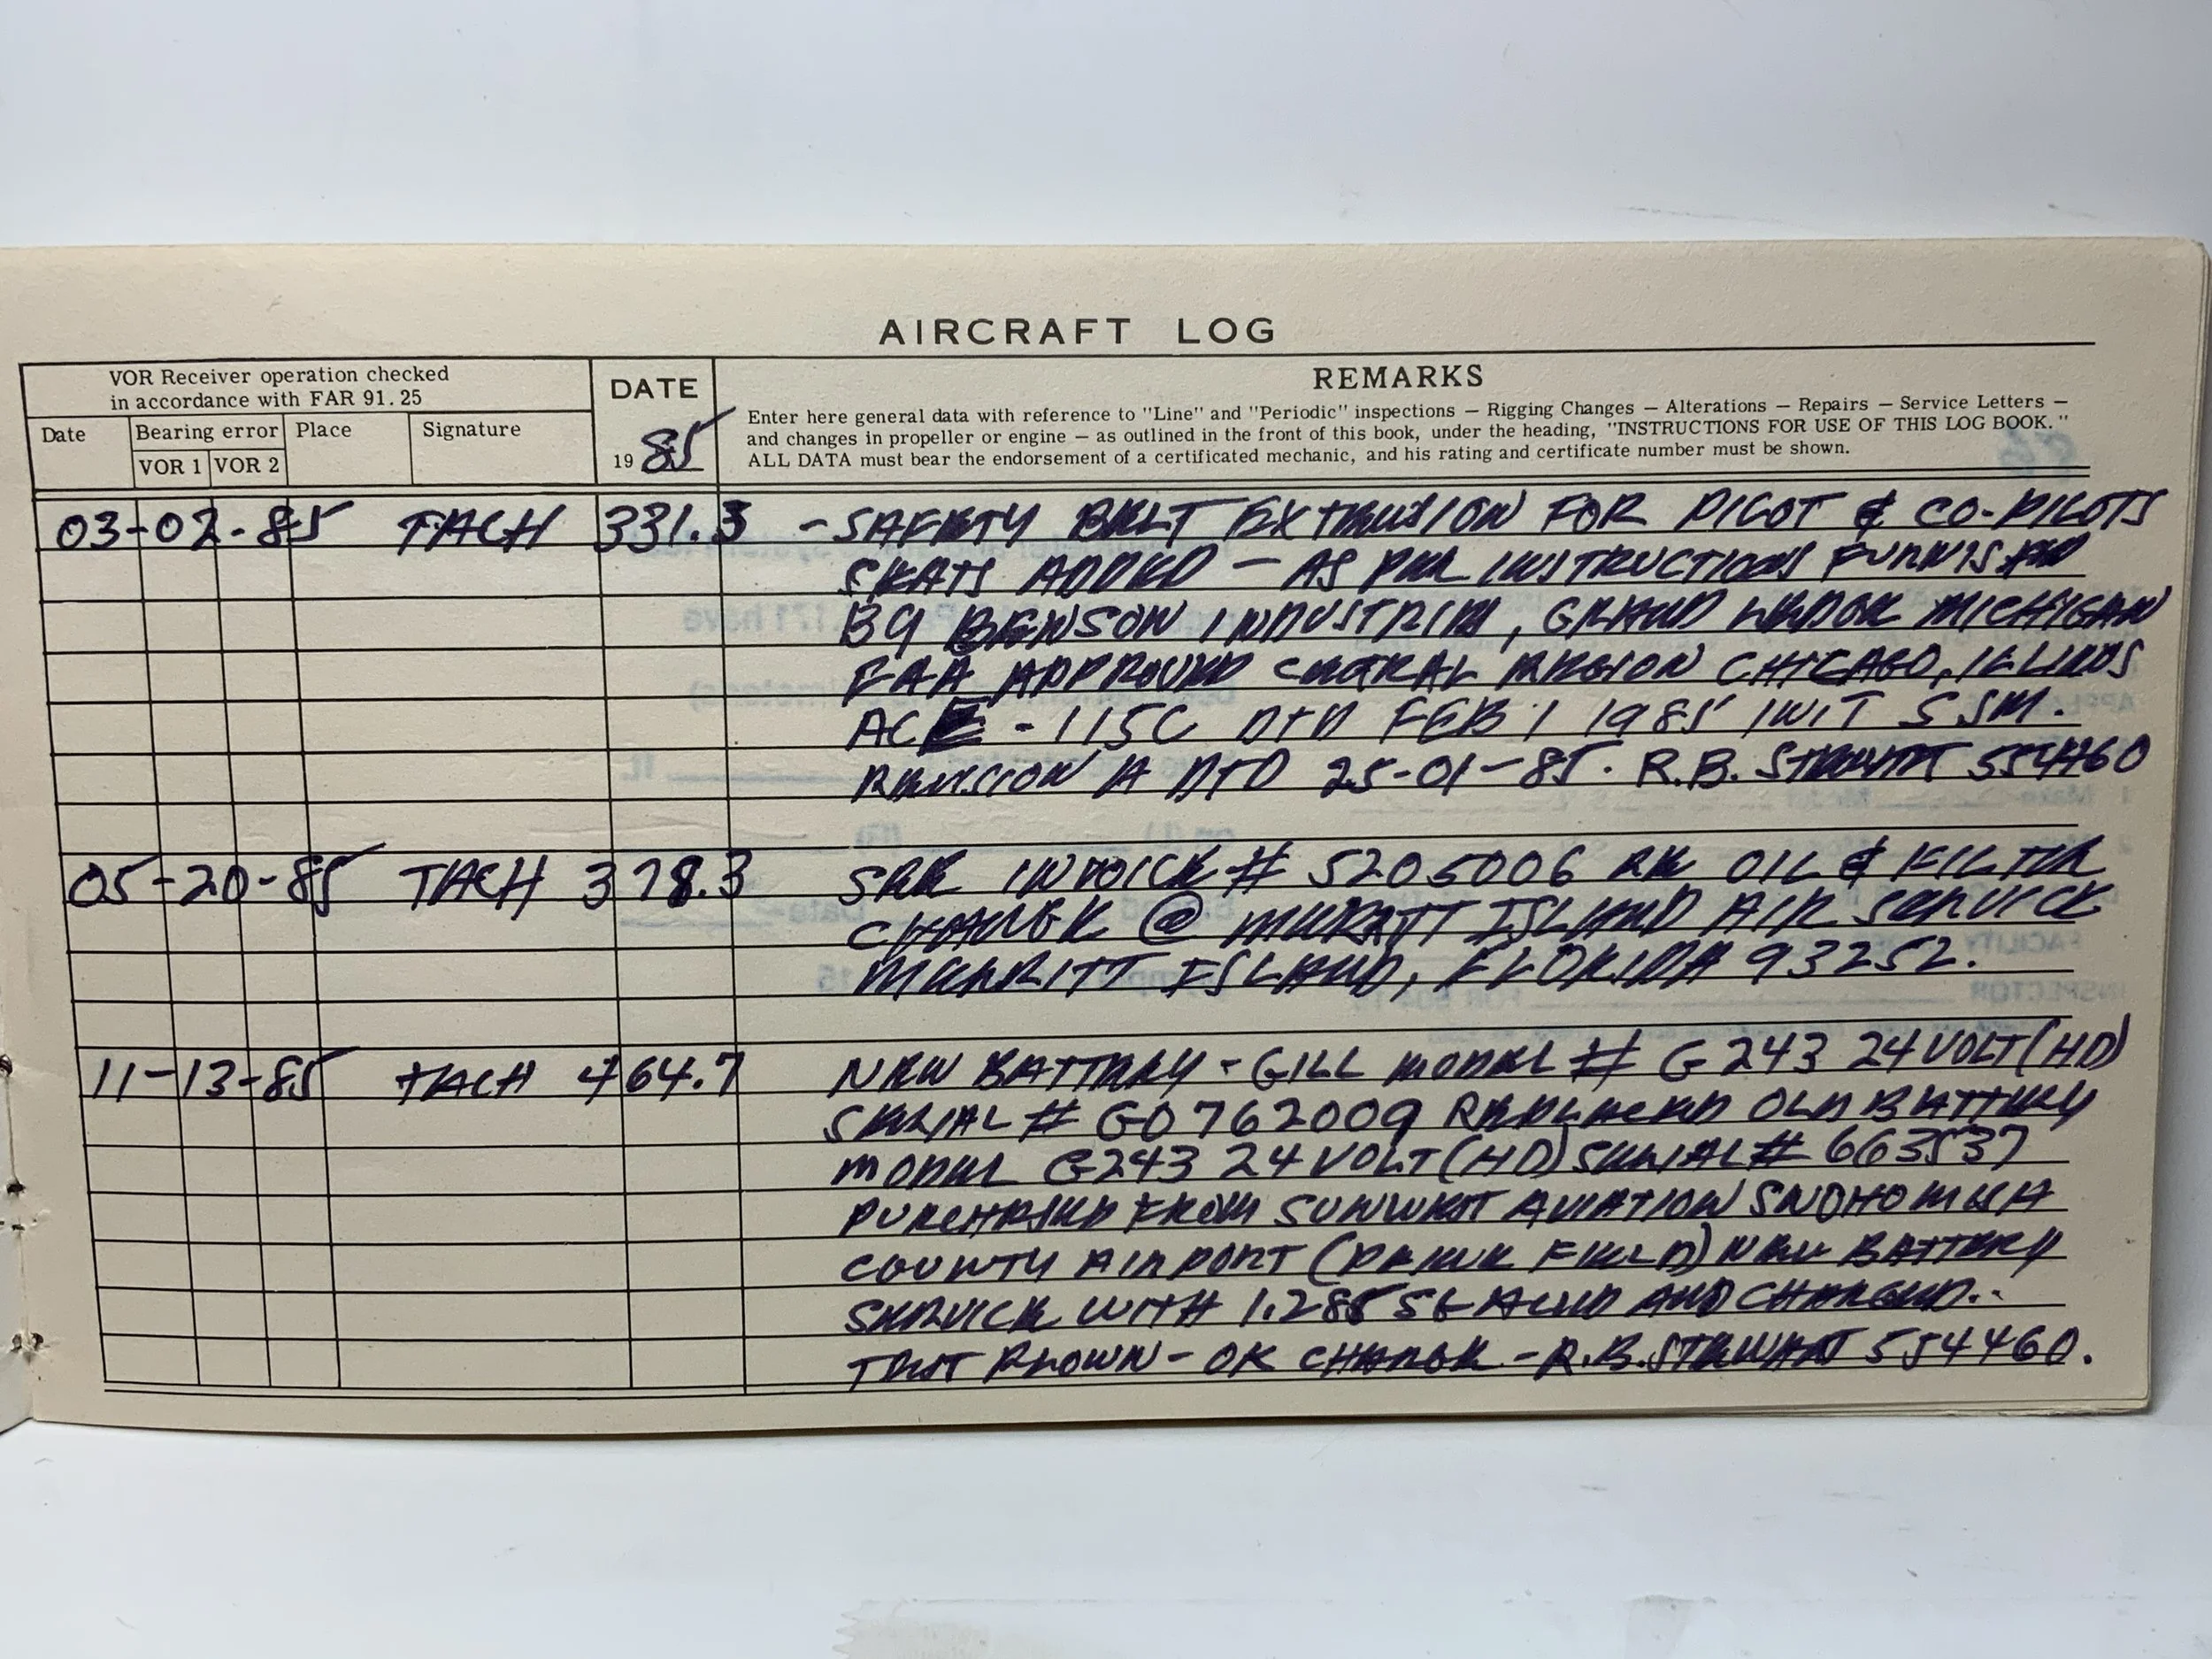 AIRCRAFT LOG
VOR Receiver operation checked
in accordance with FAR 91.25
Date
Bearing error
VOR 1 VOR 2
Place
Signature
DATE
1985
REMARKS
Enter here general data with reference to "Line" and "Periodic" inspections — Rigging Changes — Alterations — Repairs — Service Letters —
and changes in propeller or engine — as outlined in the front of this book, under the heading, "INSTRUCTIONS FOR USE OF THIS LOG BOOK."
ALL DATA must bear the endorsement of a certificated mechanic, and his rating and certificate number must be shown.
03-02-85 TACH 331.3 - SAFETY BELT EXTRUSION FOR PILOT & CO-PILOTS
SEATS ADDED - AS PER INSTRUCTIONS FURNISHED
BY BENSON INDUSTRIES, GRAND LEDGE MICHIGAN
FAA APPROVED CENTRAL REGION CHICAGO, ILLINOIS
ACE - 115C DTD FEB 1 1985 INIT SSM.
REVISION A DTD 25-01-85. R.B. STEWART 554460
05-20-85 TACH 378.3 SEE INVOICE # 5205006 RE OIL & FILTER
CHANGE @ MERRITT ISLAND AIR SERVICE
MERRITT ISLAND, FLORIDA 93252.
11-13-85 TACH 464.7 NEW BATTERY - GILL MODEL # G243 24 VOLT (HD)
SERIAL # G0762009 REPLACED OLD BATTERY
MODEL G243 24 VOLT (HD) SERIAL # 663537
PURCHASED FROM SUNWEST AVIATION SNOHOMISH
COUNTY AIRPORT (PAINE FIELD) NEW BATTERY
SERVICE WITH 1.285 SG ACID AND CHARGED..
TEST FLOWN - OK CHARGE - R.B. STEWART 554460.